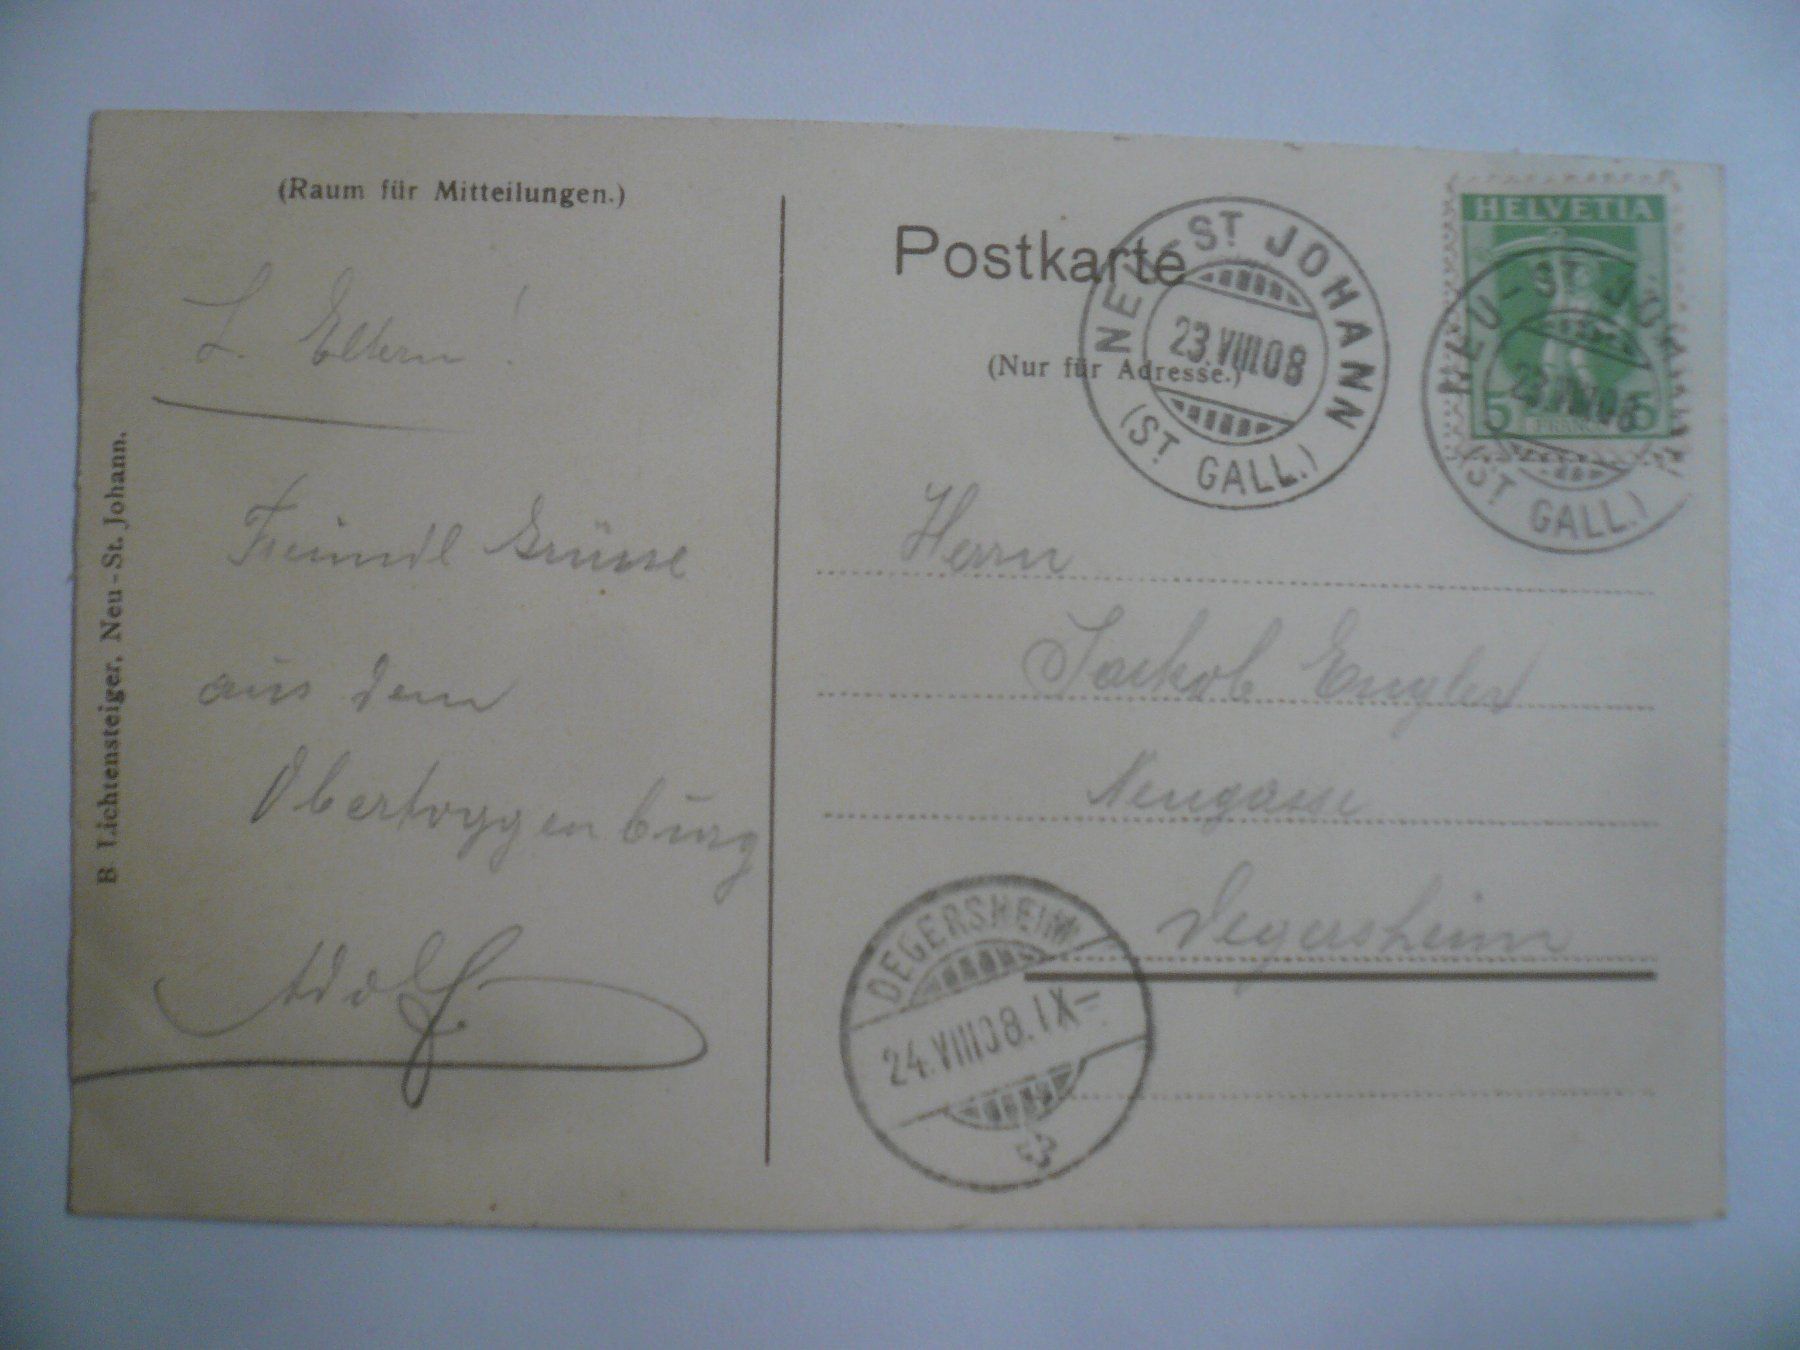 (Raum für Mitteilungen.)
L. Eltern!
Freundl Grüsse
aus dem
Obertoggenburg
Adolf
B. Lichtensteiger, Neu-St. Johann.
Postkarte
(Nur für Adresse.)
NEU-ST. JOHANN
23.VIII.08
(ST. GALL.)
HELVETIA
5 5
FRANCO
NEU-ST. JOH
23.VIII.08
(ST. GALL.)
Herrn
Jackob Engler
Neugasse
Degersheim
DEGERSHEIM
24.VIII.08.IX-